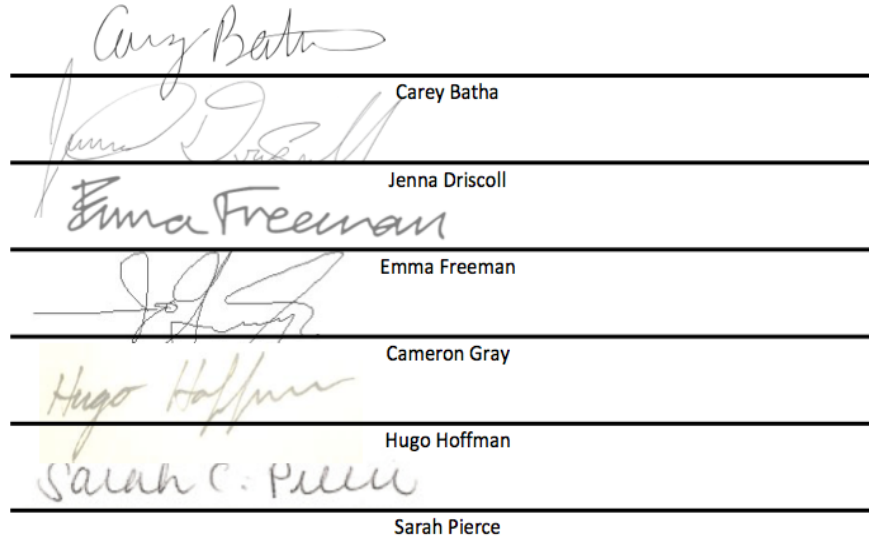 Carey Batha
Carey Batha
Jenna Driscoll
Jenna Driscoll
Emma Freeman
Emma Freeman
Cameron Gray
Hugo Hoffman
Hugo Hoffman
Sarah C. Pierce
Sarah Pierce